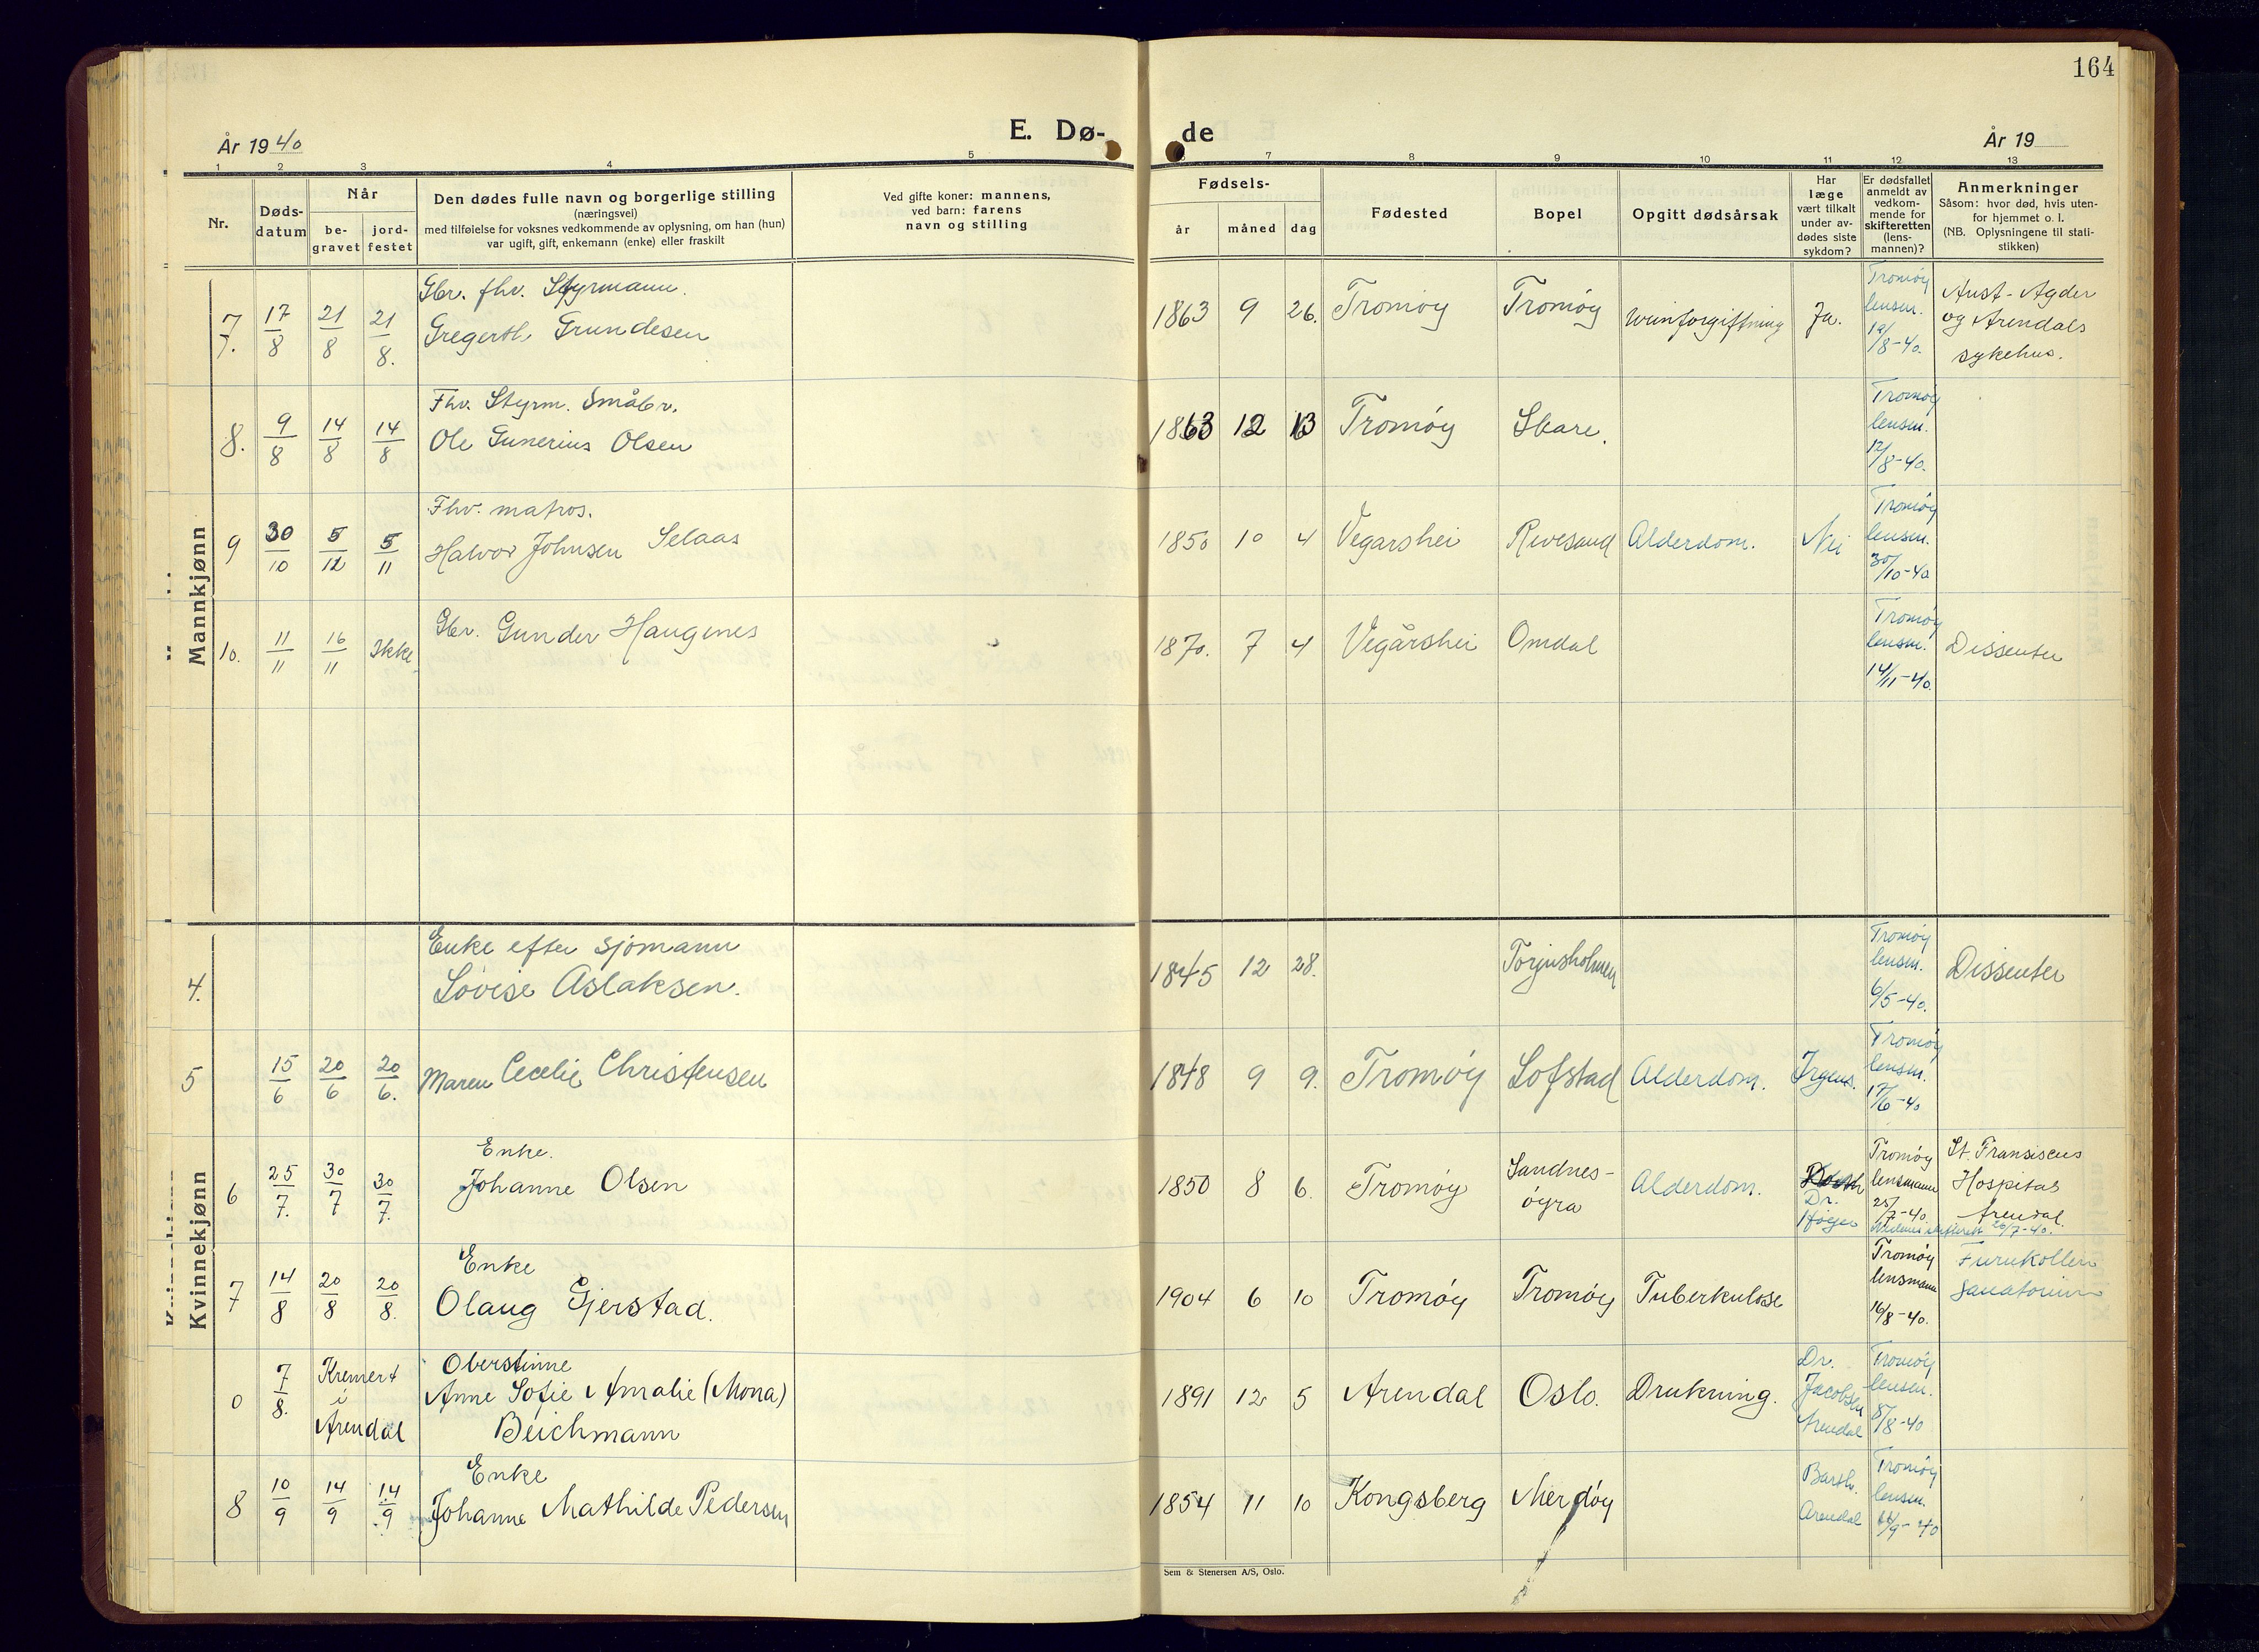 164
År 1940
E. Dø-
de
År 19
1 2 3 4 5 7 8 9 10 11 12 13
Nr.
Døds-
datum
Når
be-
gravet
jord-
festet
Den dødes fulle navn og borgerlige stilling
(næringsvei)
med tilføielse for voksnes vedkommende av oplysning, om han (hun)
var ugift, gift, enkemann (enke) eller fraskilt
Ved gifte koner: mannens,
ved barn: farens
navn og stilling
Fødsels-
år
måned
dag
Fødested
Bopel
Opgitt dødsårsak
Har
læge
vært tilkalt
under av-
dødes siste
sykdom?
Er dødsfallet
anmeldt av
vedkom-
mende for
skifteretten
(lens-
mannen)?
Anmerkninger
Såsom: hvor død, hvis uten-
for hjemmet o. l.
(NB. Oplysningene til stati-
stikken)
Mannkjønn
Gbr. fhv. Styrmann.
7. 17/8 21/8 21/8. Grundesen 1863 9 26. Tromøy Tromøy urinforgiftning Ja. Tromøy
lensm.
19/8-40.
Aust-Agder
og Arendals
sykehus.
Fhv. Styrm. Småbr.
8. 9/8 14/8 14/8 Ole Gunerius Olsen 1863 12 13 Tromøy Skare. Tromøy
lensm.
12/8-40.
Fhv. matros.
9 30/10 5/12 5/11 Halvor Johnsen Selaas 1850 10 4 Vegarshei Revesand Alderdom. Nei Tromøy
lensm.
30/10-40
10. 11/11 16/11 Ikke Gbr. Gunder Haugenes 1870. 7 4 Vegårshei Omdal Tromøy
lensm.
14/11-40.
Dissenter
Kvinnekjønn
Enke efter sjømann
4. Lovise Aslaksen. 1845 12 28. Torjusholmen Tromøy
lensm.
6/5-40.
Dissenter
5 15/6 20/6 20/6. Maren Cecelie Christensen 1848 9 9. Tromøy Lofstad Alderdom. Irgens. Tromøy
lensm.
17/6-40
Enke.
6 25/7. 30/7 30/7. Johanne Olsen 1850 8 6. Tromøy Sandnes-
øyra
Alderdom.
Dr.
Tromøy
lensmann
25/7-40.
St. Fransiscus
Hospital
Arendal.
26/7-40.
Enke
7 14/8 20/8 20/8. Olaug Gjerstad. 1904 6 10 Tromøy Tromøy Tuberkulose Tromøy
lensmann
16/8-40.
Furukollen
Sanatorium
Oberstinne
0 7/8. Kremert
i
Arendal
Anne Sofie Amalie (Mona)
Beichmann
1891 12 5 Arendal Oslo. Drukning. Dr.
Jacobsen
Arendal
Tromøy
lensm.
8/8-40
Enke
8 10/9 14/9 14/9 Johanne Mathilde Pedersen 1854 11 10 Kongsberg Merdøy Barth.
Arendal
Tromøy
lensm.
Sem & Stenersen A/S, Oslo.